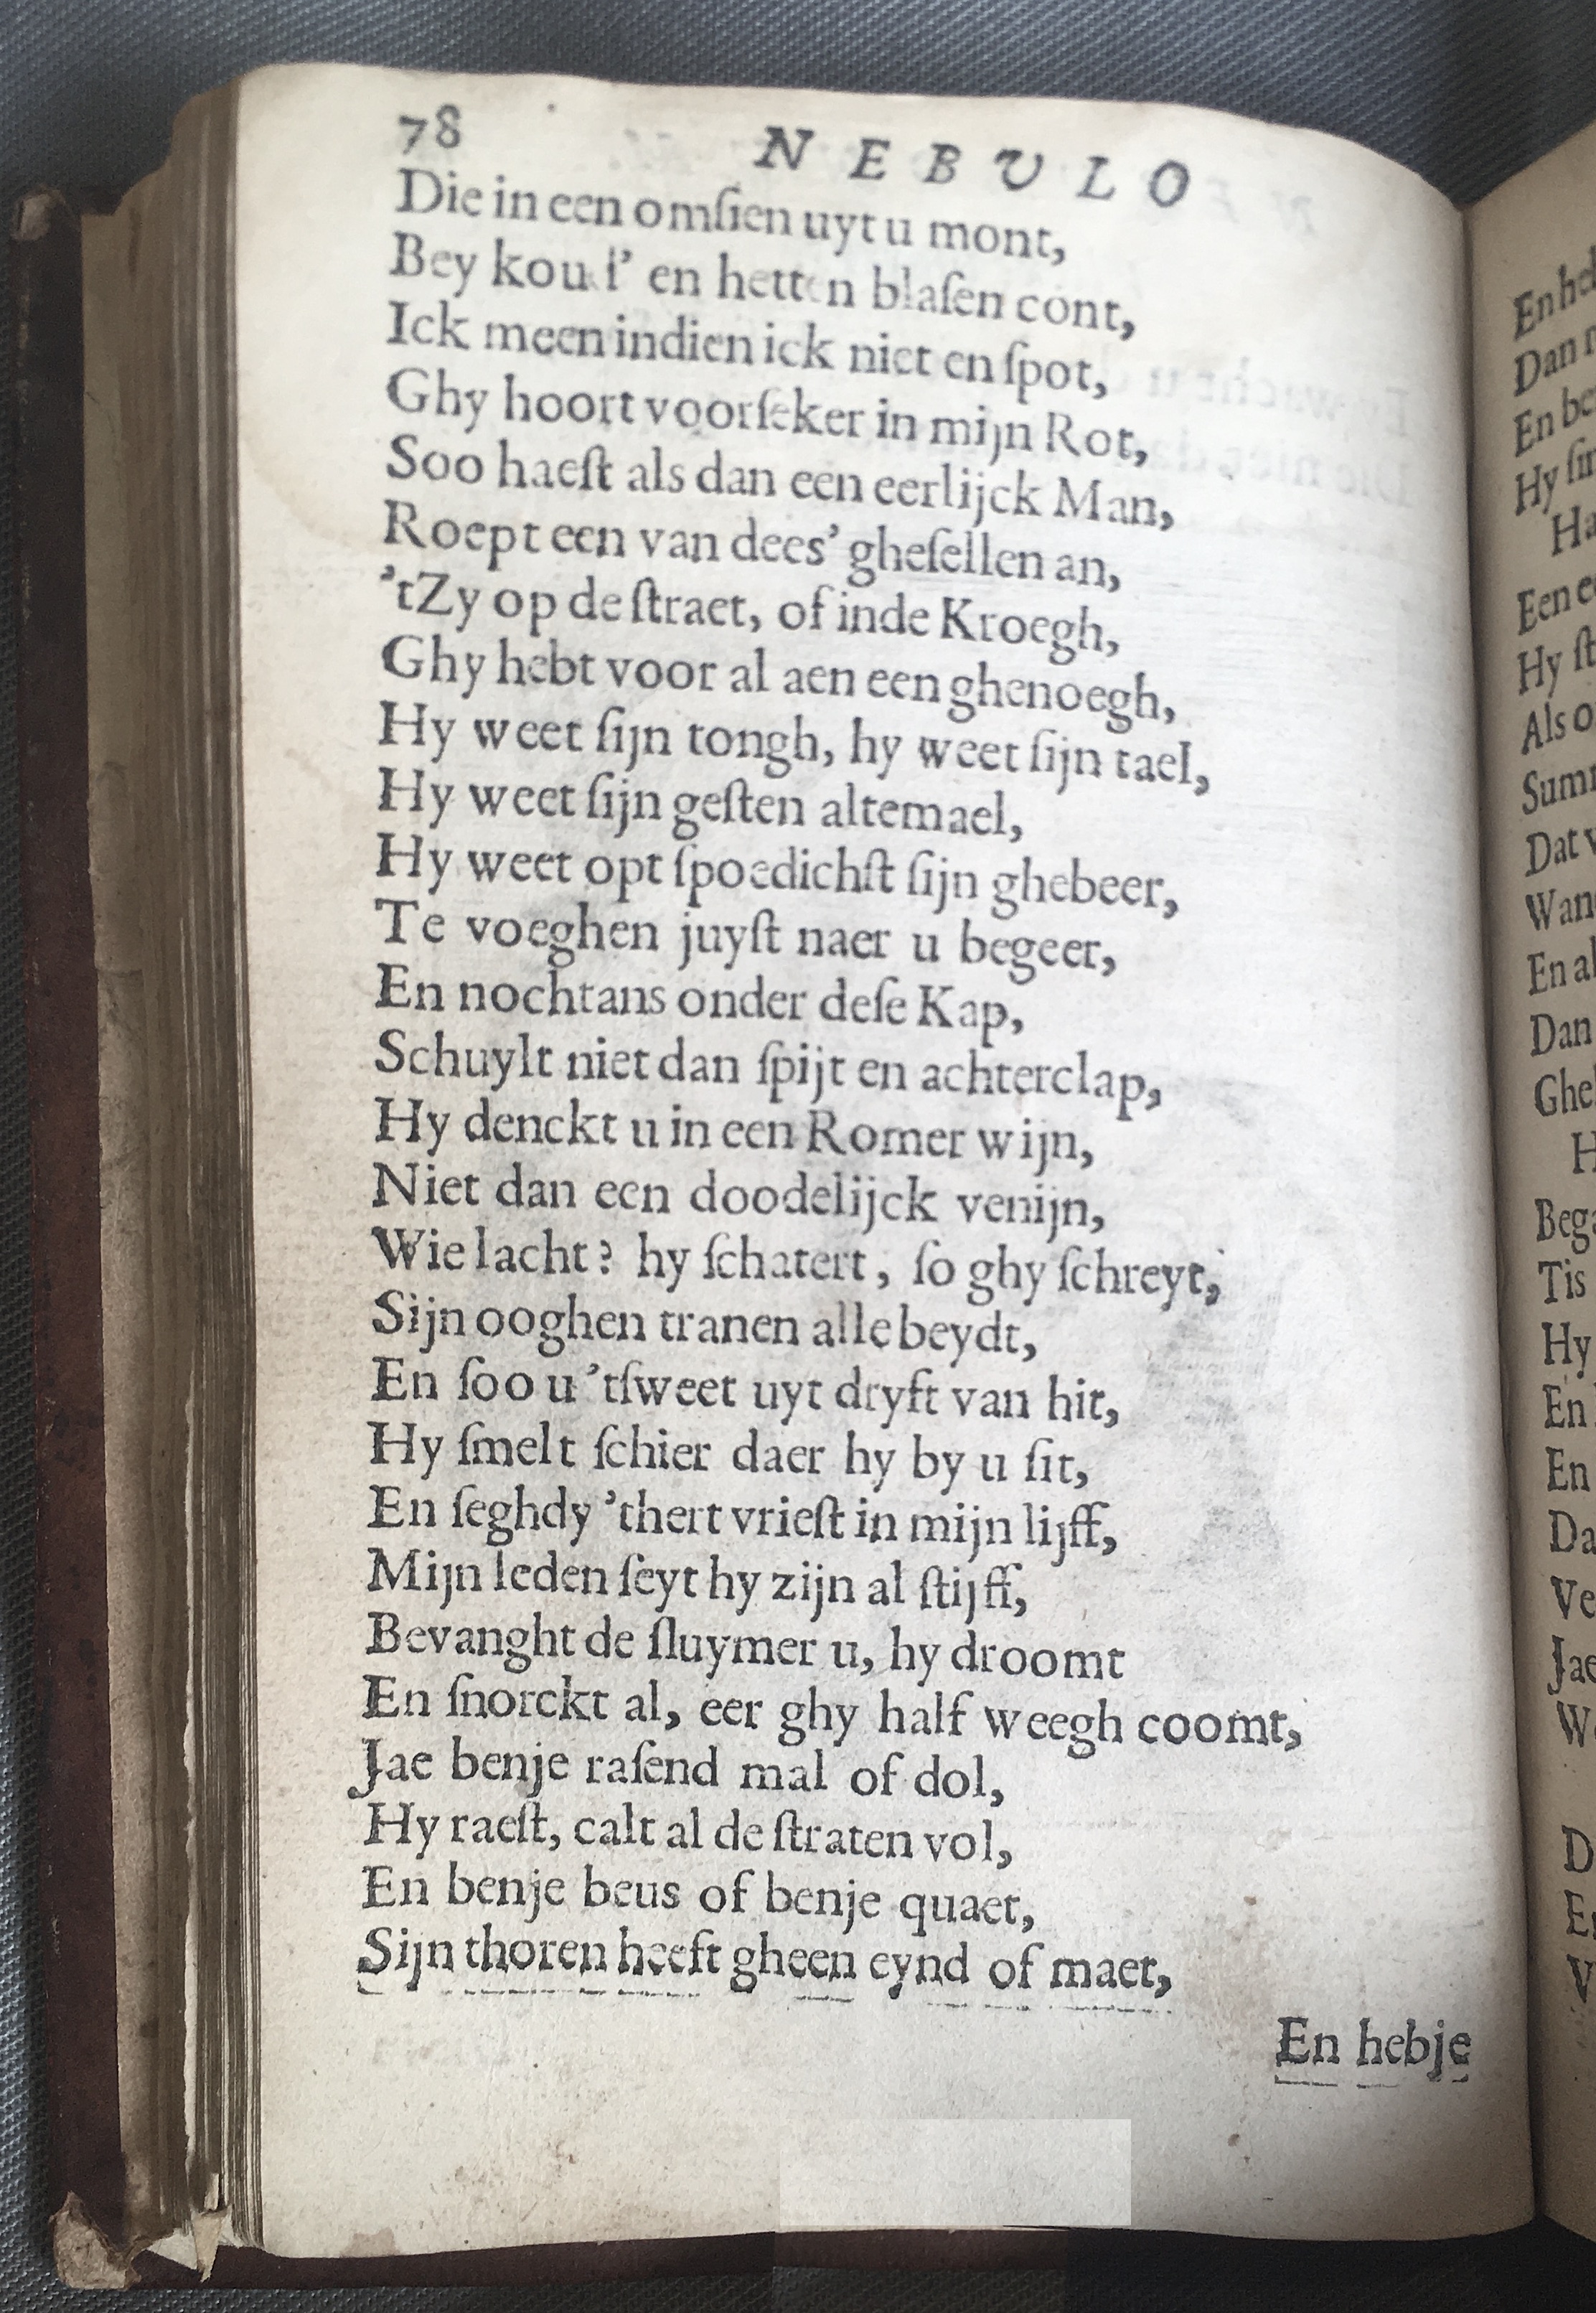 78 NEBVLO
Die in een omſien uyt u mont,
Bey koud' en hetten blaſen cont,
Ick meen indien ick niet en ſpot,
Ghy hoort voorſeker in mijn Rot,
Soo haeſt als dan een eerlijck Man,
Roept een van dees' gheſellen an,
'tZy op de ſtraet, of inde Kroegh,
Ghy hebt voor al aen een ghenoegh,
Hy weet ſijn tongh, hy weet ſijn tael,
Hy weet ſijn geſten altemael,
Hy weet opt ſpoedichſt ſijn ghebeer,
Te voeghen juyſt naer u begeer,
En nochtans onder deſe Kap,
Schuylt niet dan ſpijt en achterclap,
Hy denckt u in een Romer wijn,
Niet dan een doodelijck venijn,
Wie lacht? hy ſchatert, ſo ghy ſchreyt,
Sijn ooghen tranen alle beydt,
En ſoo u 'tſweet uyt dryft van hit,
Hy ſmelt ſchier daer hy by u ſit,
En ſeghdy 'thert vrieſt in mijn lijff,
Mijn leden ſeyt hy zijn al ſtijff,
Bevanght de ſluymer u, hy droomt
En ſnorckt al, eer ghy half weegh coomt,
Jae benje raſend mal of dol,
Hy raeſt, calt al de ſtraten vol,
En benje beus of benje quaet,
Sijn thoren heeft gheen eynd of maet,
En hebje
En
Dan
En
Hy
Een
Hy
Als
Dat
En al
Dan
Tis
Hy
En
En